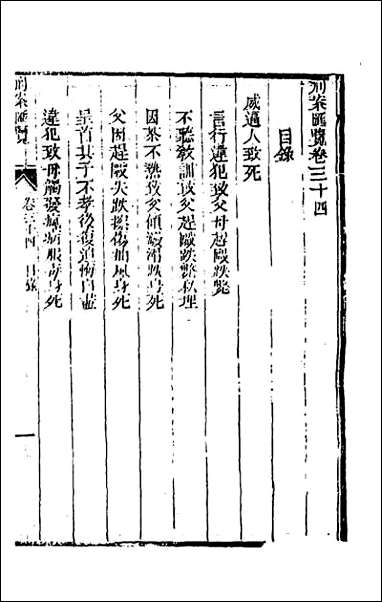 刑案匯覽卷三十四
目錄
威逼人致死
言行違犯致父母趕毆跌斃
不聽敎訓致父趕毆跌斃私埋
因茶不熟致父傾潑滑跌身死
父因趕毆失跌擦傷抽風身死
呈首其子不孝後復追悔自盡
違犯致母觸發瘋病服毒身死
刑案匯覽
卷三十四 目錄
一